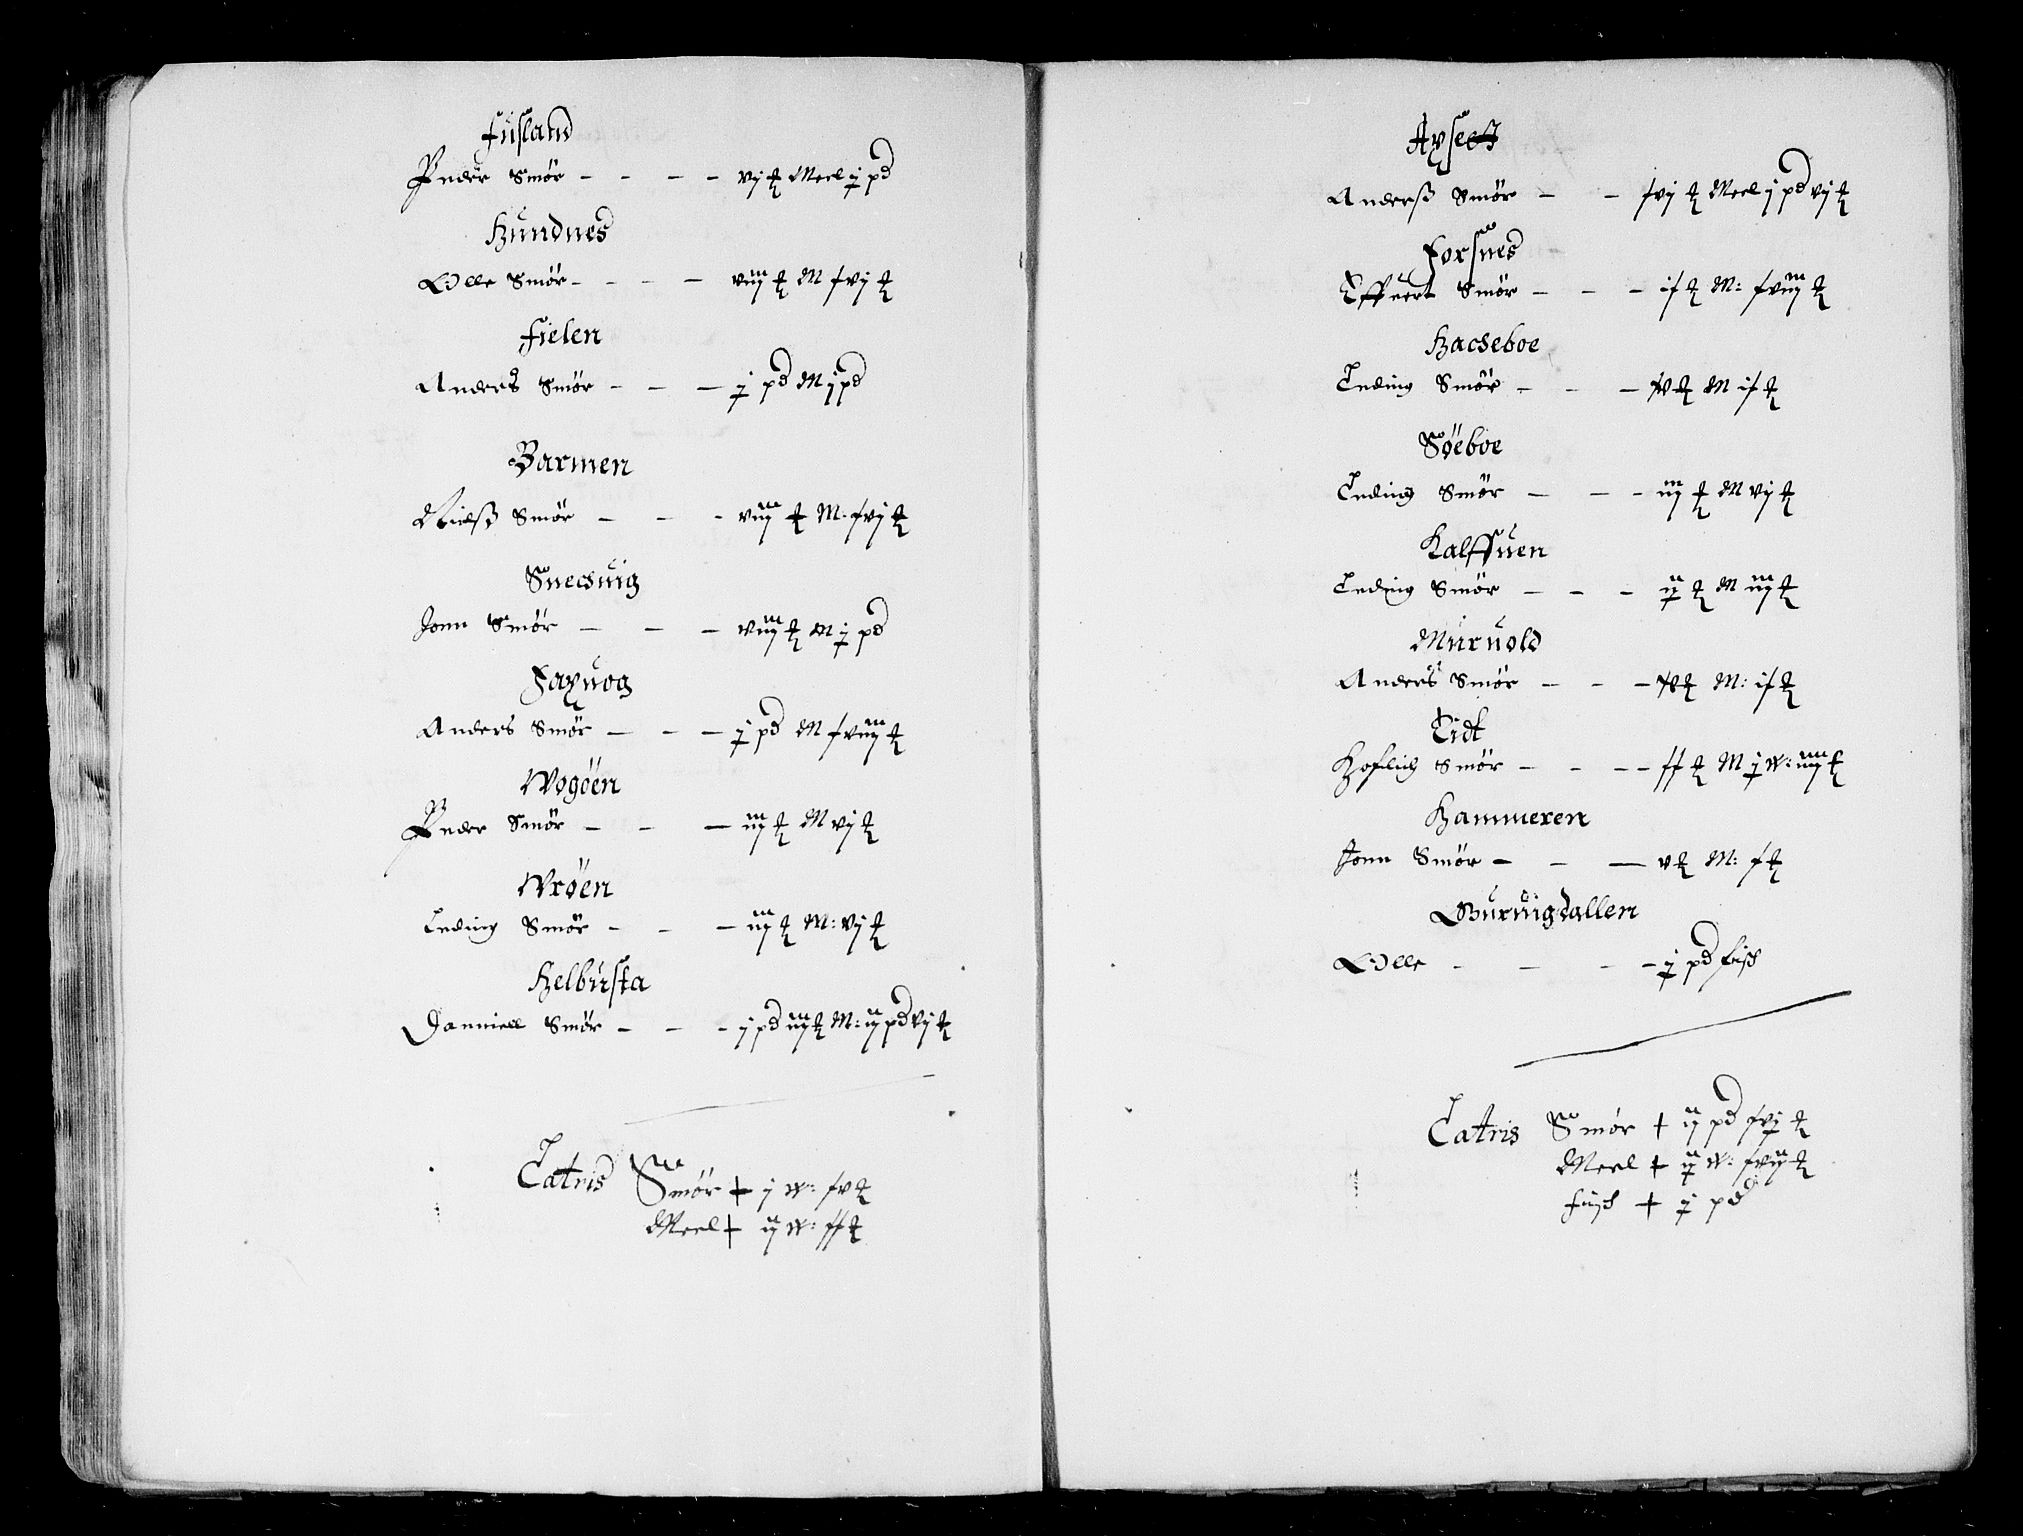 Fiisland
Peder Smör - - - - vj ℔ Meel j pd
Hundnes
Olle Smör - - - - viij ℔ M xvj ℔
Fielen
Anders Smör - - - j pd M j pd
Barmen
Nielß Smör - - - viij ℔ M: xvj ℔
Snecsuig
Jonn Smör - - - viij ℔ M j pd
Faxuog
Anders Smör - - - j pd M xviij ℔
Wogöen
Peder Smör - - - iij ℔ M vj ℔
Wröen
Eeding Smör - - - iij ℔ M: vj ℔
Helbusta
Danniell Smör - - - j pd iij ℔ M: ij pd vj ℔
Latris Smör + j W: xv ℔
Meel + ij W: xx ℔
Apset
Anderß Smör - - xvj ℔ Meel j pd vj ℔
Forsnes
Effuert Smör - - - ix ℔ M: xviij ℔
Hacseboe
Eeding Smör - - - M ix ℔
Söeboe
Eeding Smör - - - iij ℔ M vj ℔
Kalffuen
Eeding Smör - - - ij ℔ M iij ℔
Muruold
Anders Smör - - - M: ix ℔
Eidt
Smör - - - - xx ℔ M j W: iiij ℔
Hammeren
Jonn Smör - - - v ℔ M: x ℔
Buruigdallen
Olle - - - - j pd fisch
Latris Smör + ij pd xvj ℔
Meel + ij W: xvij ℔
fisch + j pd